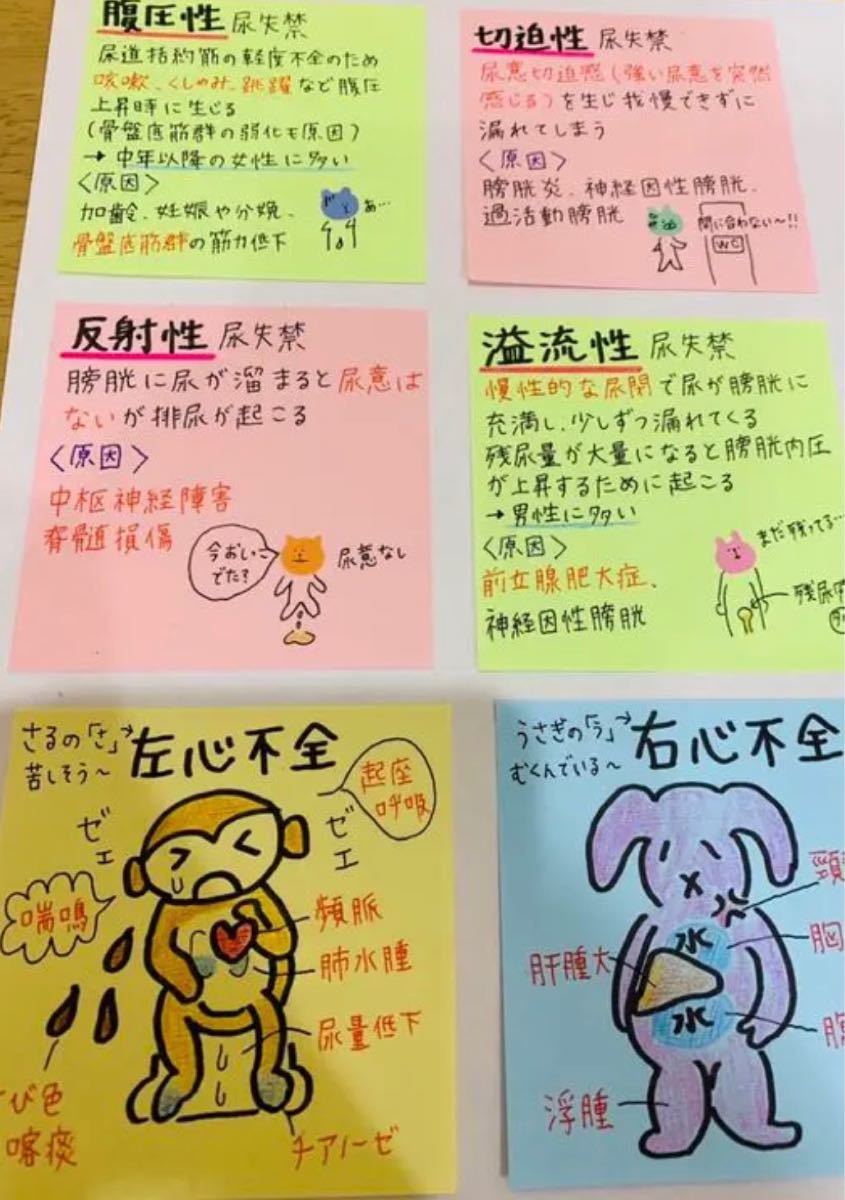 腹圧性 尿失禁
尿道括約筋の軽度不全のため
咳嗽、くしゃみ、跳躍など腹圧
上昇時に生じる
(骨盤底筋群の弱化も原因)
→中年以降の女性に多い
<原因>
加齢、妊娠や分娩、
骨盤底筋群の筋力低下
あ…
切迫性 尿失禁
尿意切迫感(強い尿意を突然
感じる)を生じ我慢できずに
漏れてしまう
<原因>
膀胱炎、神経因性膀胱、
過活動膀胱
間に合わない〜!!
WC
反射性 尿失禁
膀胱に尿が溜まると尿意は
ないが排尿が起こる
<原因>
中枢神経障害
脊髄損傷
今おしっこ
でた?
尿意なし
溢流性 尿失禁
慢性的な尿閉で尿が膀胱に
充満し、少しずつ漏れてくる
残尿量が大量になると膀胱内圧
が上昇するために起こる
→男性に多い
<原因>
前立腺肥大症、
神経因性膀胱
まだ残ってる…
残尿
さるの「さ」→
苦しそう〜
左心不全
起座
呼吸
ゼェ
ゼェ
喘鳴
頻脈
肺水腫
尿量低下
び色
喀痰
チアノーゼ
うさぎの「う」→
むくんでいる〜
右心不全
頸
水
胸
肝腫大
水
腹
浮腫